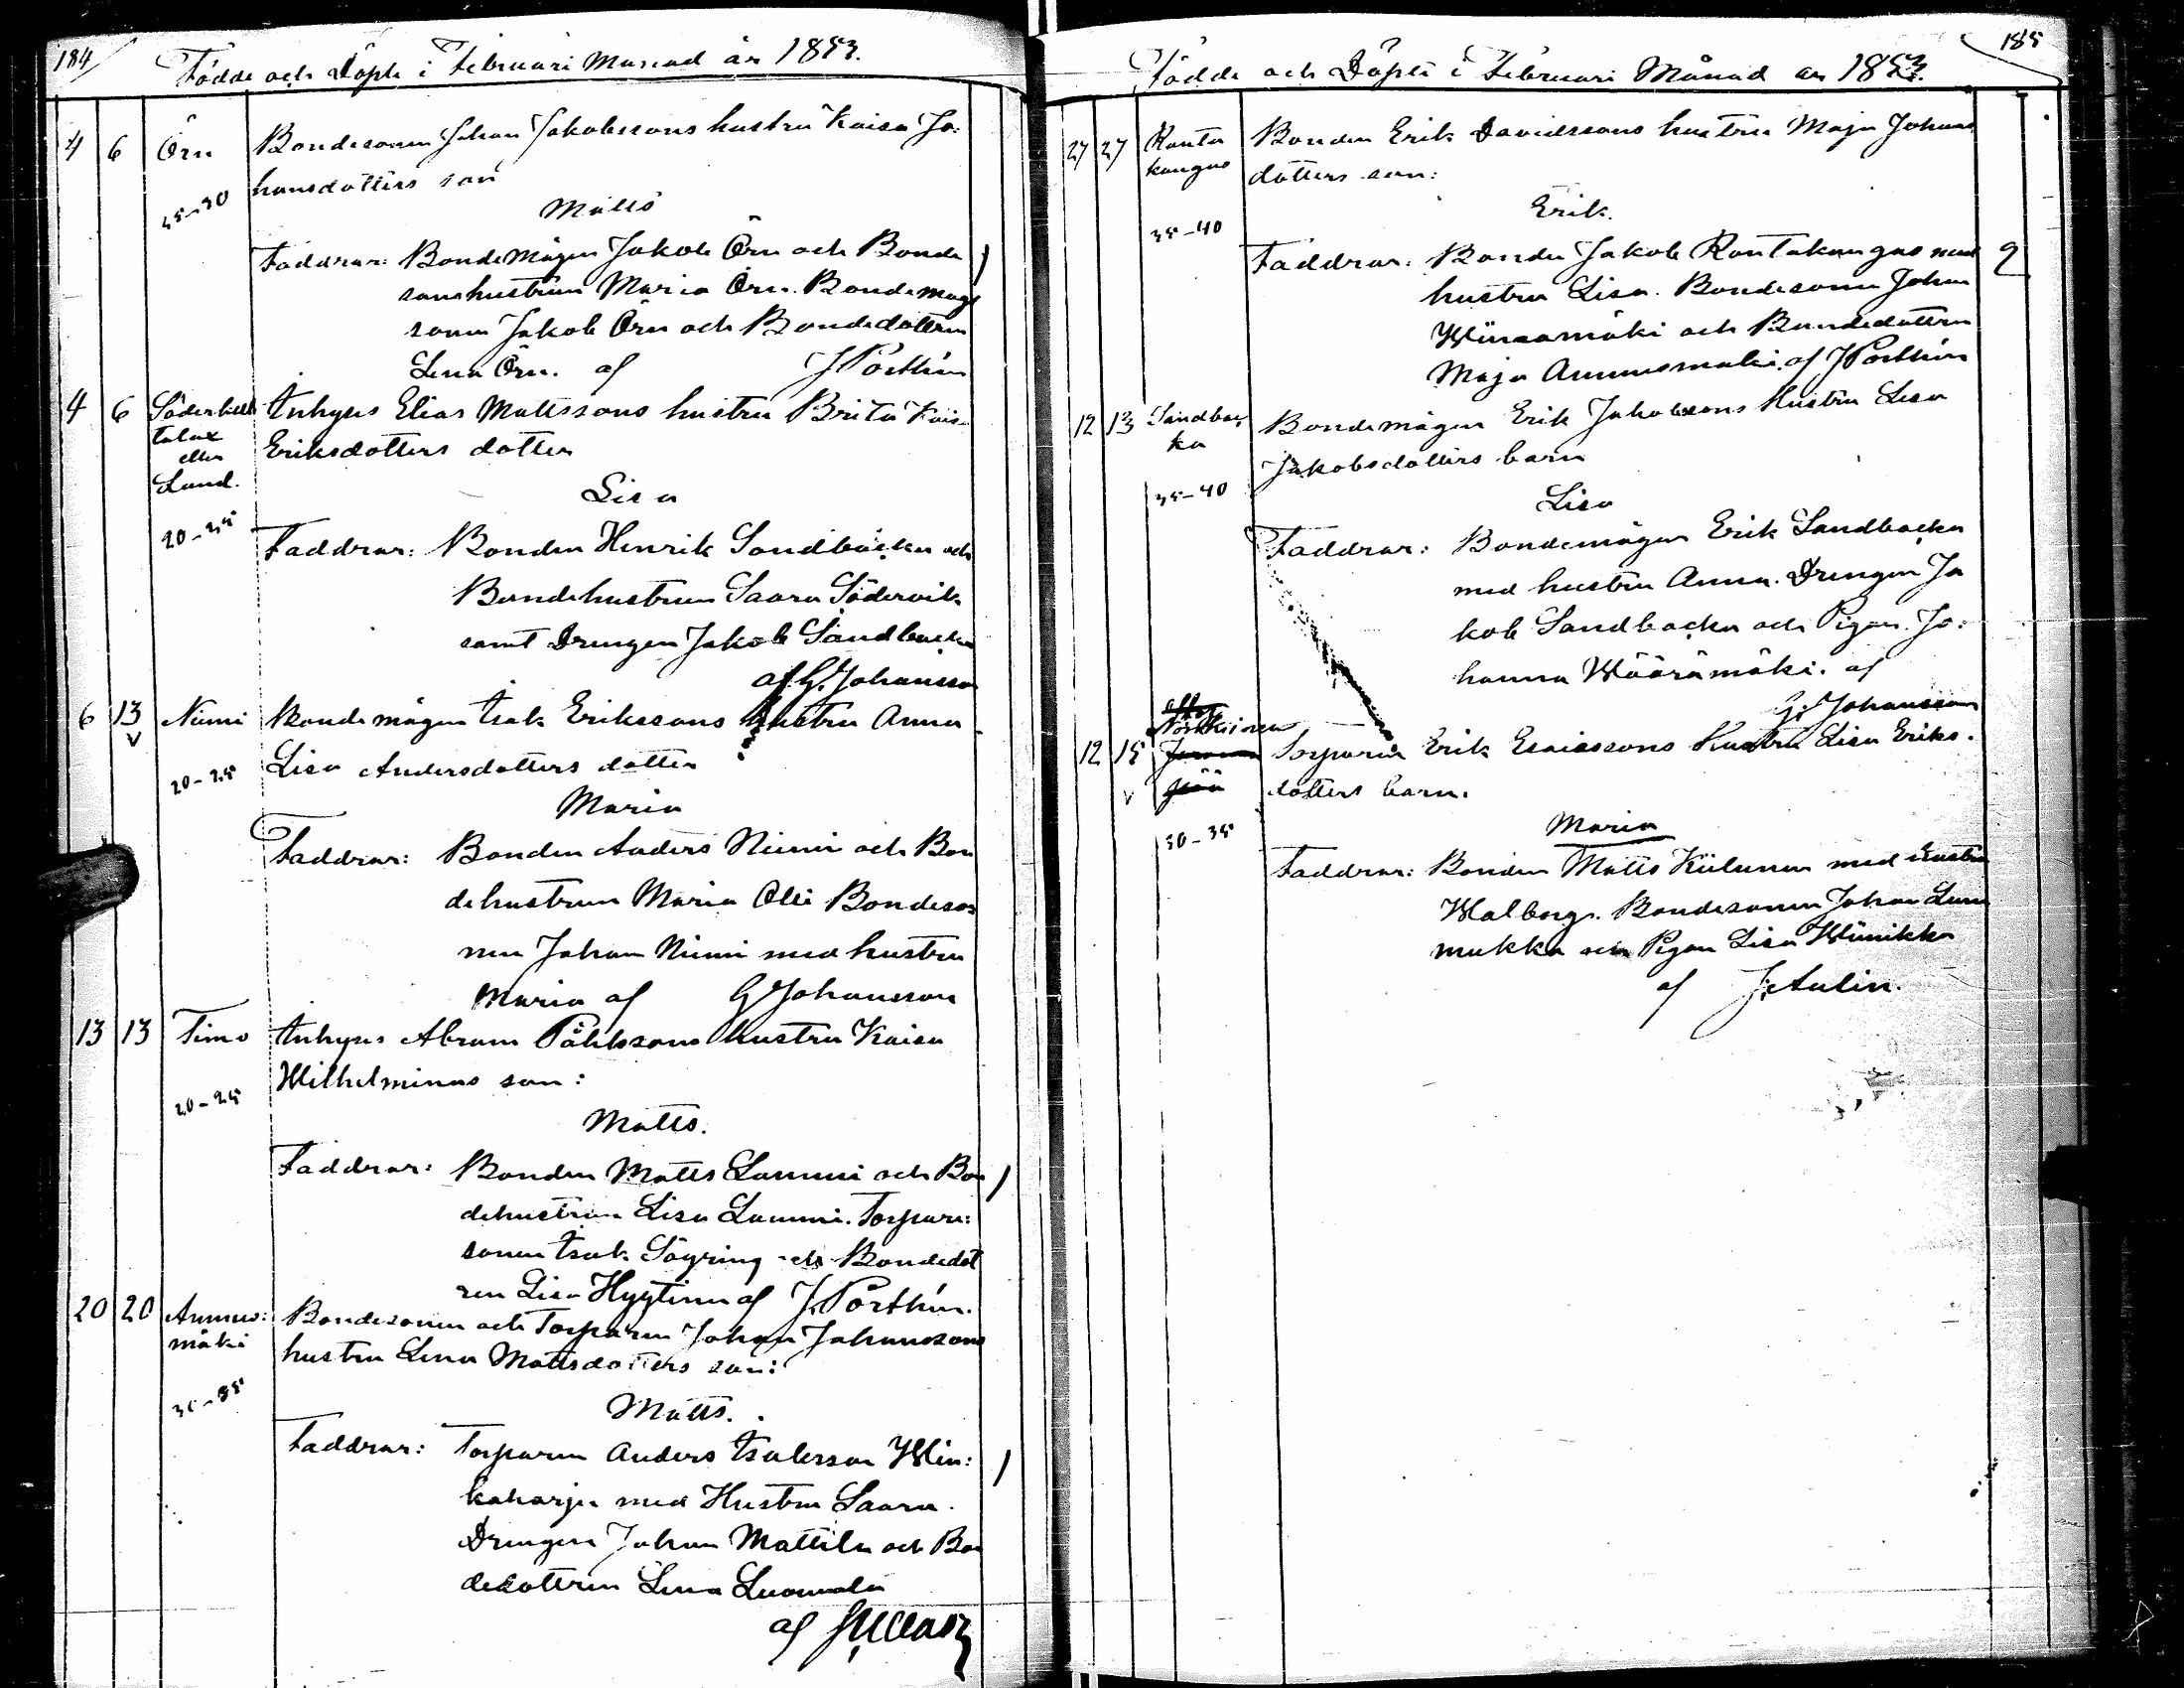 184
Födde och Döpte i Februari Månad år 1853.
4 6 Örn Bondesonen Johan Jakobssons hustru Kaisa Jo:
hansdotters son
25-30
Matts
Faddrar: Bondemågen Jakob Örn och Bonde
sonshustrun Maria Örn. Bondemågs
sonen Jakob Örn och Bondedottren
Lena Örn. af J Porthin
4 6 Inhyses Elias Mattssons hustru Brita Kais
eller Eriksdotters dotter
Lund.
Lisa
20-25
Faddrar: Bonden Henrik Sandbacka och
Bondehustrun Saara Södervik
samt Drengen Jakob Sandbacka
af G. Johansson
6 13 Niemi Bondemågen Isak Erikssons hustru Anna
v
Lisa Andersdotters dotter
20-25
Maria
Faddrar: Bonden Anders Niemi och Bon
dehustrun Maria Olli Bondeso
nen Johan Niemi med hustru
Maria af G Johansson
13 13 Timo Inhyses Abram Påhlssons hustru Kaisa
Wilhelminas son:
20-25
Matts.
Faddrar: Bonden Matts Lammi och Bon
dehustrun Lisa Lammi. Torpare:
sonen Isak Sögring och Bondedot
ren Lisa Hyytinen af J. Porthin.
20 20 Ammes: Bondesonen och Torparen Johan Johanssons
mäki hustru Lena Mattsdotters son:
Matts.
Faddrar: Torparen Anders Isaksson Win:
kaharju med Hustru Saara.
Drengen Johan Mattila och Bon
dedottren Lena Luomala
af
185
Födde och Döpte i Februari Månad år 1853.
27 27 Ranta Bonden Erik Davidssons hustru Maja Johans
kangas dotters son:
Erik.
35-40
Faddrar: Bonden Jakob Rantakangas med
hustru Lisa. Bondesonen Johan
Wiinamäki och Bondedottren
Maja Ammesmäki. af J Porthin
12 13 Sandbac Bondemågen Erik Jakobssons Hustru Lisa
ka Jakobsdotters barn
35-40
Lisa
Faddrar: Bondemågen Erik Sandbacka
med hustru Anna. Drengen Ja
kob Sandbacka och Pigan Jo:
hanna Wäärämäki. af
G. Johansson
12 15 Torparen Erik Esaiassons Hustru Lisa Eriks.
v dotters barn.
30-35
Maria
Faddrar: Bonden Matts Kiilunen med Hustru
Walborg. Bondesonen Johan Lum
mukka och Pigan Lisa Wiinikka
af J. Aulin.